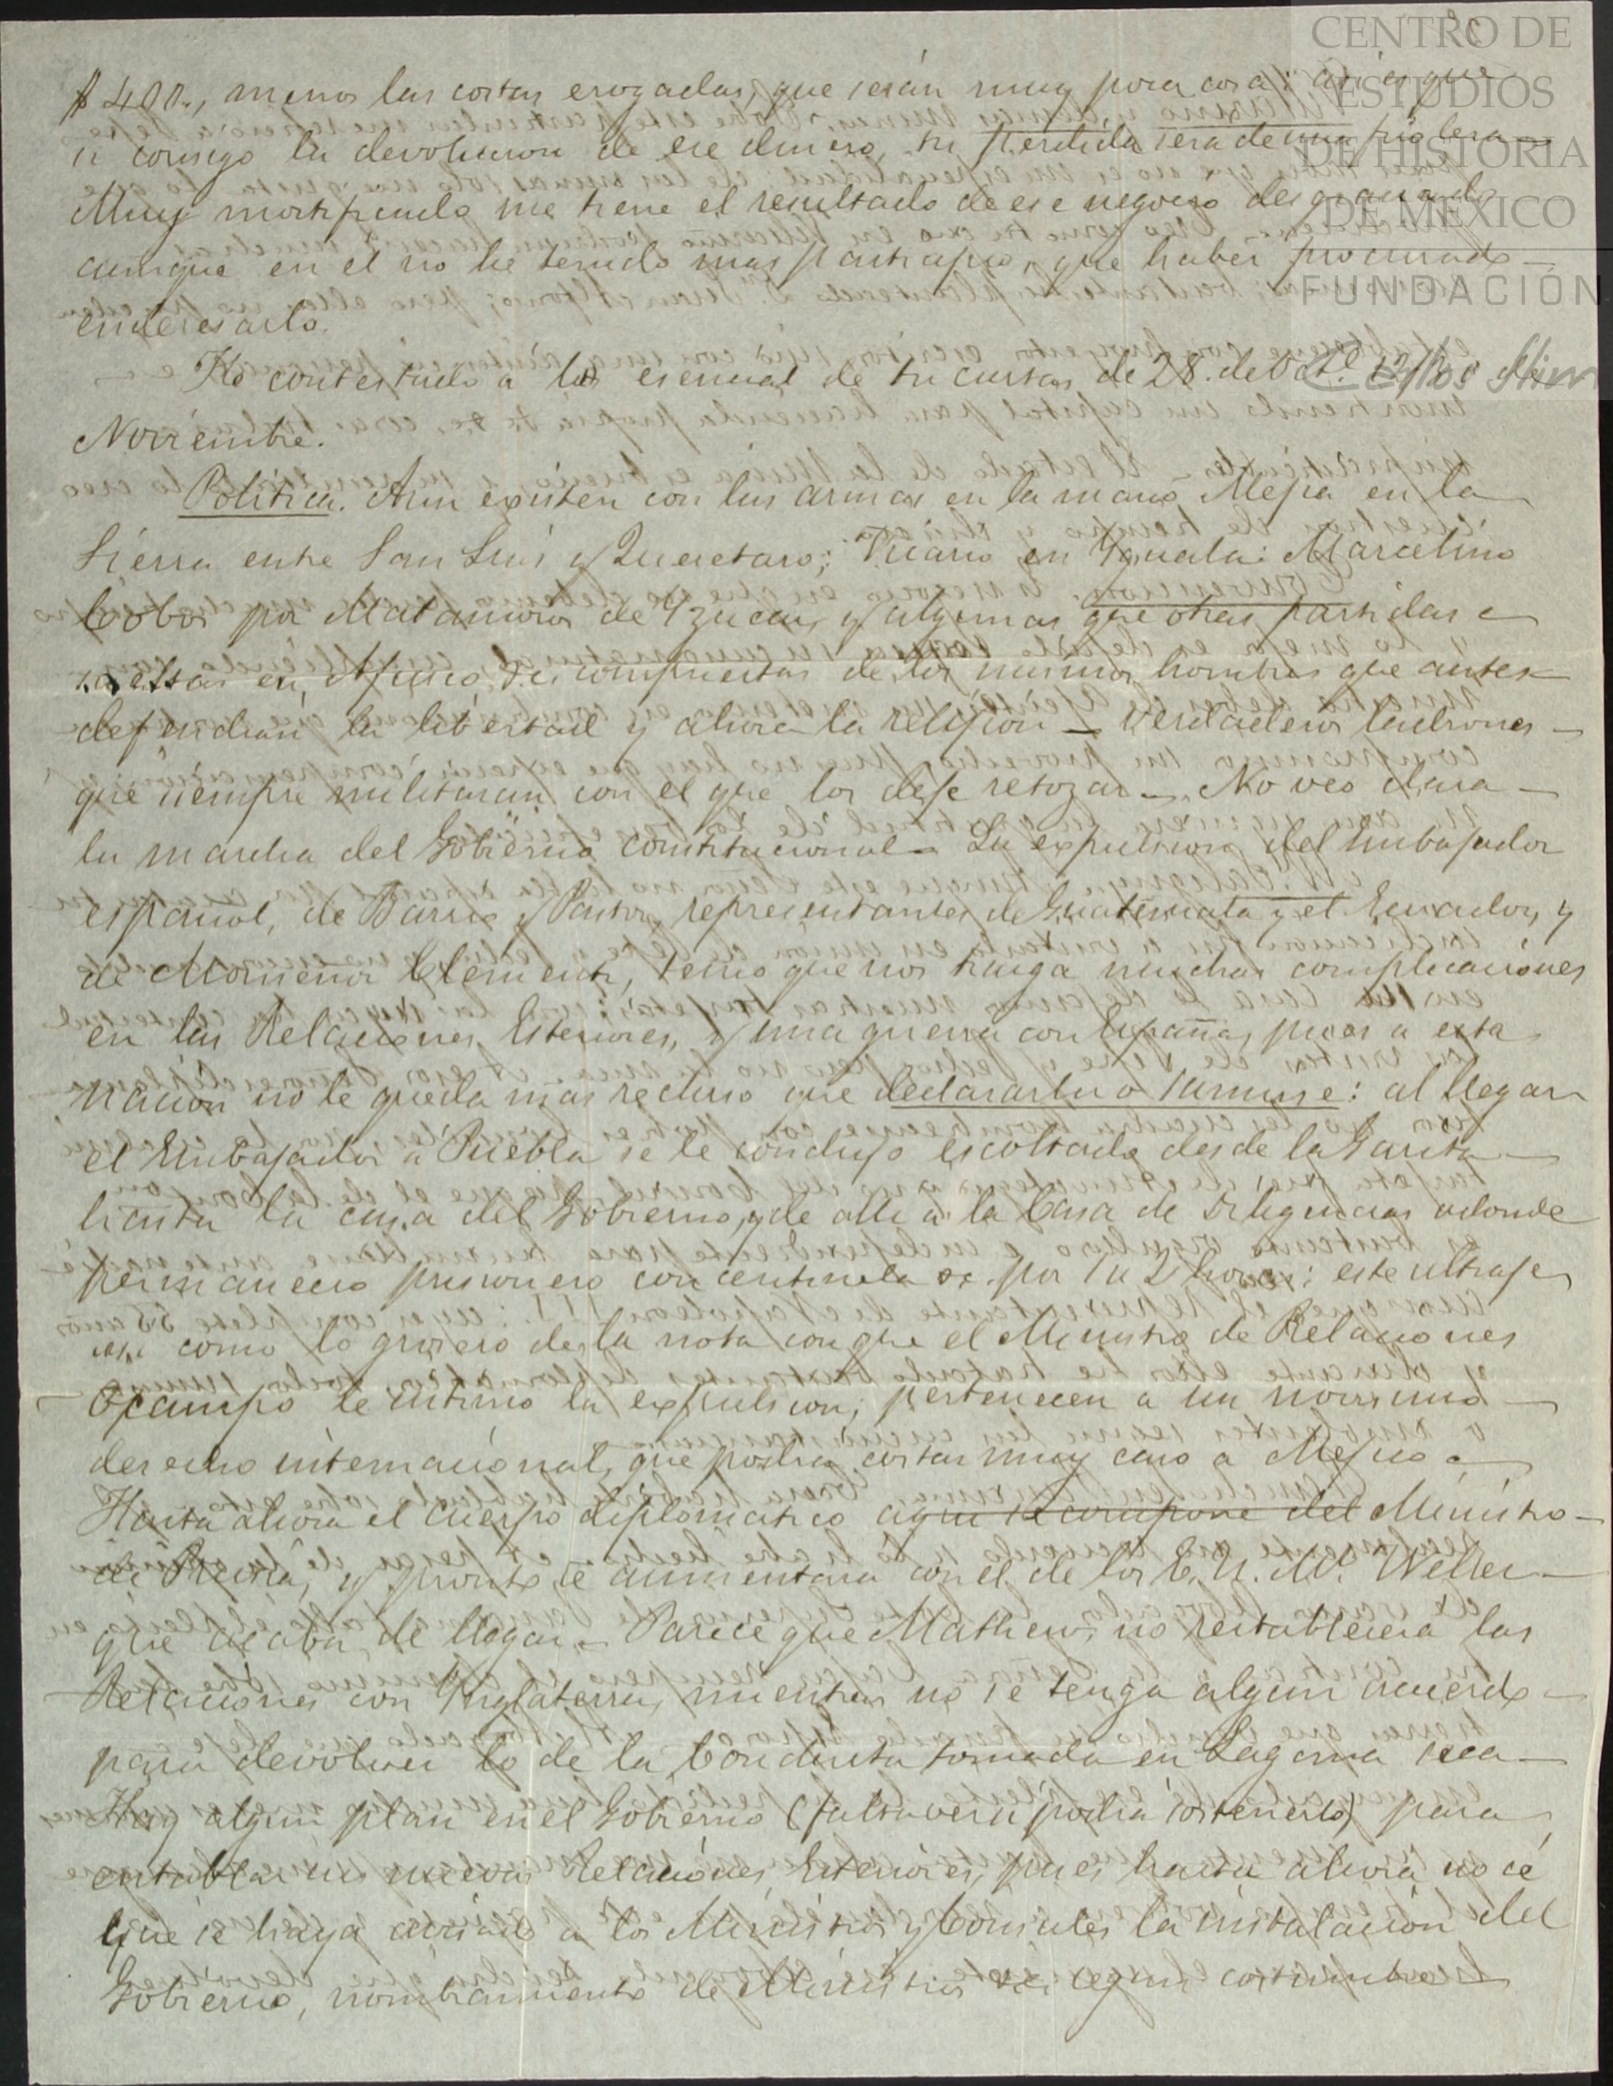 CENTRO DE
ESTUDIOS
DE HISTORIA
DE MEXICO
FUNDACIÓN
Carlos Slim
$400., menos las costas erogadas, que serán muy poca cosa; así es que
si consigo la devolucion de ese dinero, tu perdida sera de una friolera
Muy mortificado me tiene el resultado de ese negocio desgraciado
aunque en el no he tenido mas participio, que haber procurado
enderesarlo.
He contestado a lo esencial de tu cartas de 28. de Oct.e de
Noviembre.
Politica. Aun existen con las armas en la mano Mejia en la
Sierra entre San Luis y Queretaro; Vicario en Yguala: Marcelino
Cobos por Matamoros de Yzucar, y algunas que otras partidas
compuestas de los mismos hombres que antes
defendian la libertad y ahora la religion — verdaderos ladrones
que siempre militaran con el que los deje retozar —. No veo clara
la marcha del Gobierno constitucional — La expulsion del Embajador
español, de Barrio y Pastor, representantes de Guatemala y el Ecuador, y
de Monseñor Clementi, temo que nos traiga muchas complicaciones
en las Relaciones Esteriores, y una guerra con España, pues a esta
nacion no le queda mas recurso que declararla o sumirse: al llegar
el Embajador a Puebla se le condujo escoltado desde la Garita
hasta la casa del Gobierno, y de alli a la Casa de Diligencias adonde
permanecio prisionero con centinela &. por 1 u 2 horas: este ultraje,
asi como lo grosero de la nota con que el Ministro de Relaciones
Ocampo le intimo la expulsion, pertenecen a un novisimo
derecho internacional, que podria costar muy caro a Mejico
Hasta ahora el Cuerpo diplomatico aqui se compone del Ministro
de Prusia, y pronto se aumentara con el de los E. U. Mr. Weller
que acaba de llegar — Parece que Mathew, no restablecera las
Relaciones con Ynglaterra, mientras no se tenga algun acuerdo
para devolver lo de la Conducta tomada en Laguna seca —
Hay algun plan en el Gobierno (falta ver si podra sostenerlo) para
entablar sus nuevas Relaciones Esteriores, pues hasta ahora no sé
que se haya avisado a los Ministros y Consules la instalacion del
Gobierno, nombramiento de Ministros &. segun costumbre